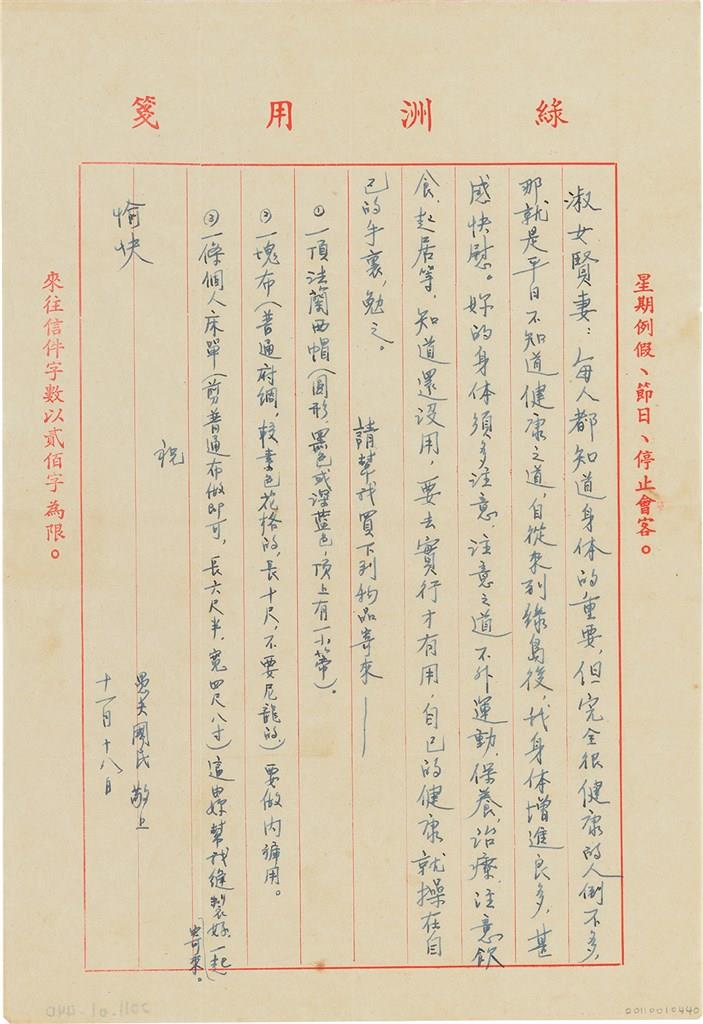 綠洲用箋
星期例假、節日、停止會客。
淑女賢妻：每人都知道身体的重要，但完全很健康的人倒不多，
那就是平日不知道健康之道，自從來到綠島後，我身体增進良多，甚
感快慰。妳的身体須多注意，注意之道不外運動，保養，治療，注意飲
食，起居等，知道還沒用，要去實行才有用，自己的健康就操在自
己的手裏，勉之。 請幫我買下列物品寄來——
①一頂法蘭西帽（圓形，黑色或深藍色，頂上有一小蒂）。
②一塊布（普通府綢，較素色花格的，長十尺，不要尼龍的）要做內褲用。
③一條個人床單（剪普通布做即可，長六尺半，寬四尺八寸）這由妳幫我縫製好，一起
寄來。
祝
愉快
愚夫國民 敬上
十一月十八日
來往信件字數以貳佰字為限。
20110010440